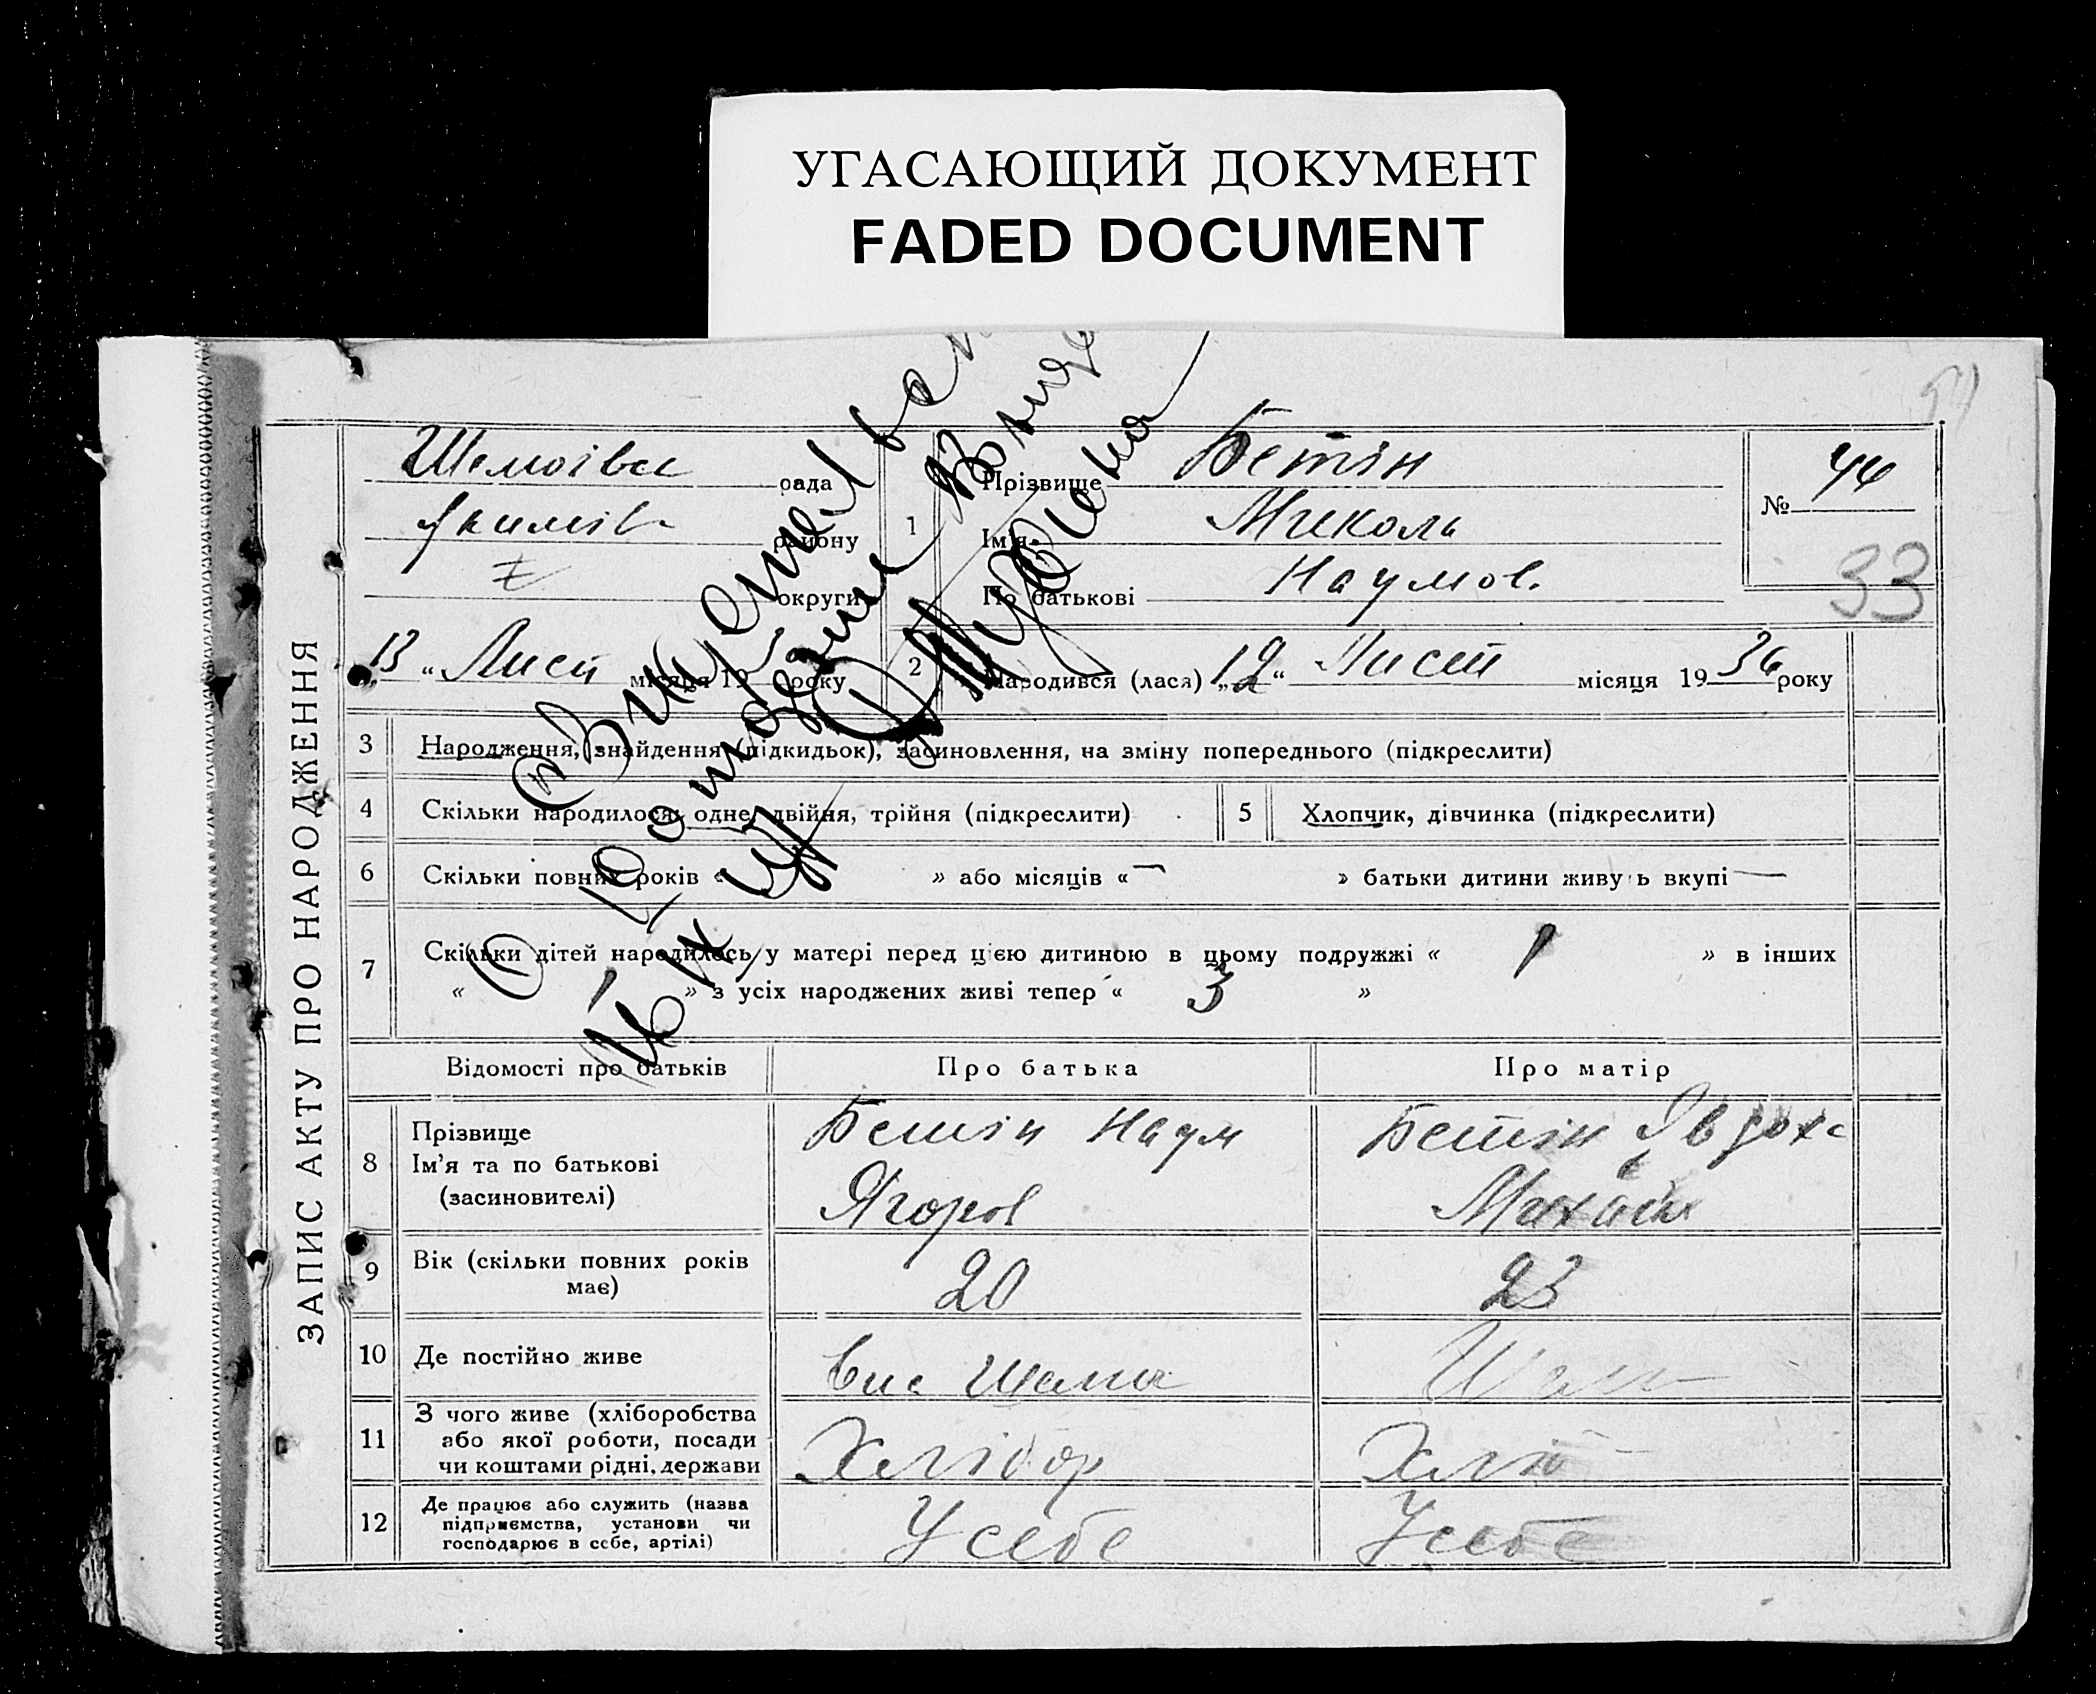 УГАСАЮЩИЙ ДОКУМЕНТ
FADED DOCUMENT
ЗАПИС АКТУ ПРО НАРОДЖЕННЯ
рада
району
округи
13 " Лист місяця 19 року
1
Прізвище Бетін
Ім'я Миколь
По батькові Наумов.
№ 44
33
2 Народився (лася) „12" Лист місяця 1936 року
3 Народження, знайдення (підкидьок), засиновлення, на зміну попереднього (підкреслити)
4 Скільки народилося: одне, двійня, трійня (підкреслити)
5 Хлопчик, дівчинка (підкреслити)
6 Скільки повних років « » або місяців «— » батьки дитини живуть вкупі —
7 Скільки дітей народилось у матері перед цією дитиною в цьому подружжі « 1 » в інших
« 1 » з усіх народжених живі тепер « 3 »
Відомості про батьків Про батька Про матір
8 Прізвище
Ім'я та по батькові
(засиновителі)
Бетін Наум
Ягоров
Бетін Явдоха
9 Вік (скільки повних років
має)
20
23
10 Де постійно живе
11 З чого живе (хліборобства
або якої роботи, посади
чи коштами рідні, держави
Хлібор
Хліб
12 Де працює або служить (назва
підприємства, установи чи
господарює в себе, артілі)
У себе
У себе